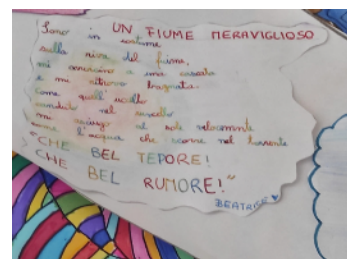 UN FIUME MERAVIGLIOSO
Sono in costume
sulla riva del fiume,
mi avvicino a una cascata
e mi ritrovo bagnata.
Come quell' uccello
candido nel ruscello
mi asciugo al sole velocemente
come l'acqua che scorre nel torrente
"CHE BEL TEPORE!
CHE BEL RUMORE!"
BEATRICE